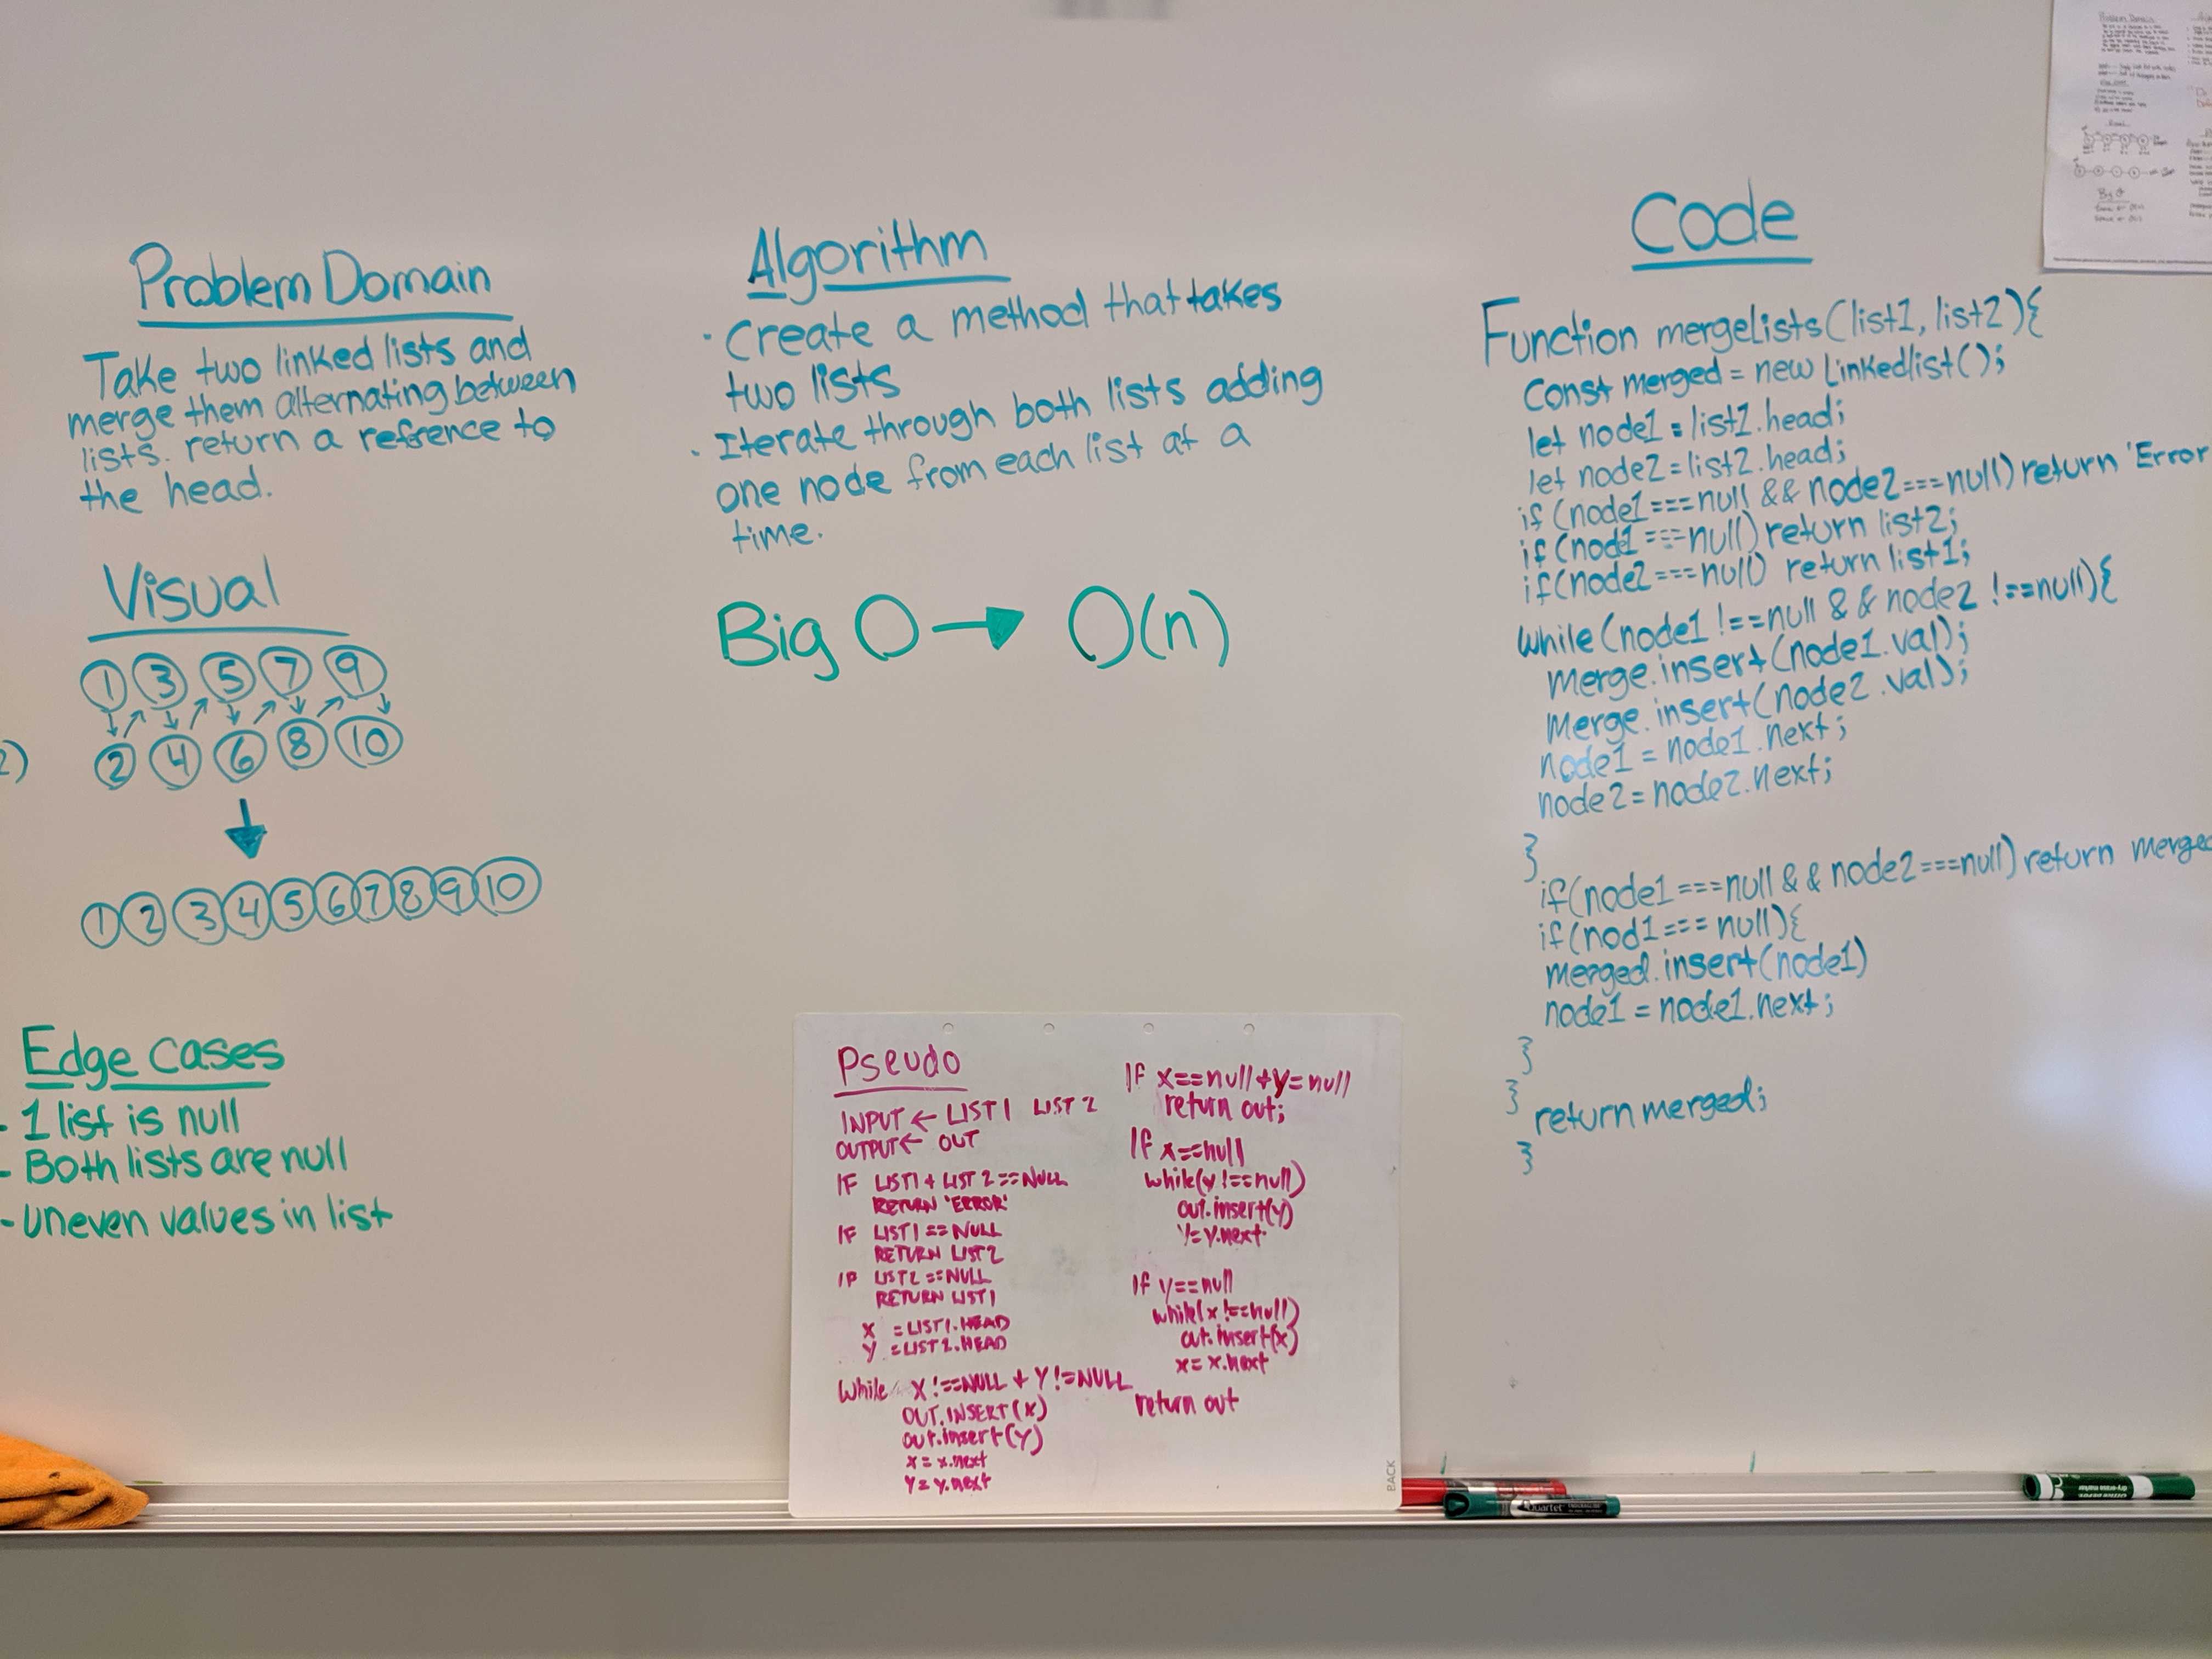 Problem Domain
Take two linked lists and
merge them alternating between
lists. return a refrence to
the head.
Visual
1 3 5 7 9
2 4 6 8 10
2)
1 2 3 4 5 6 7 8 9 10
Edge cases
- 1 list is null
- Both lists are null
- uneven values in list
Algorithm
· Create a method that takes
two lists
· Iterate through both lists adding
one node from each list at a
time.
Big O → O(n)
Pseudo
INPUT ← LIST1 LIST 2
OUTPUT ← OUT
IF LIST1 + LIST 2 == NULL
RETURN 'ERROR'
IF LIST1 == NULL
RETURN LIST2
IF LIST2 == NULL
RETURN LIST1
X = LIST1.HEAD
Y = LIST2.HEAD
While X !== NULL + Y != NULL
OUT.INSERT(X)
out.insert(Y)
x = x.next
Y = y.next
If x==null + y=null
return out;
If x==null
while(y !==null)
out.insert(y)
Y=y.next
If y==null
while(x !==null)
out.insert(x)
x = x.next
return out
BACK
Code
Function mergeLists(list1, list2){
Const merged = new Linkedlist();
let node1 = list1.head;
let node2 = list2.head;
if (node1 === null && node2 === null) return 'Error
if (node1 === null) return list2;
if (node2 === null) return list1;
while (node1 !== null && node2 !== null){
Merge.insert(node1.val);
Merge.insert(node2.val);
node1 = node1.next;
node2 = node2.next;
}
if(node1 === null && node2 === null) return merged
if(nod1 === null){
merged.insert(node1)
node1 = node1.next;
}
}
return merged;
}
Problem Domain
Visual
Big O
Quartet